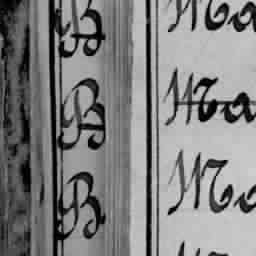 B Ma
B Ma
B Ma